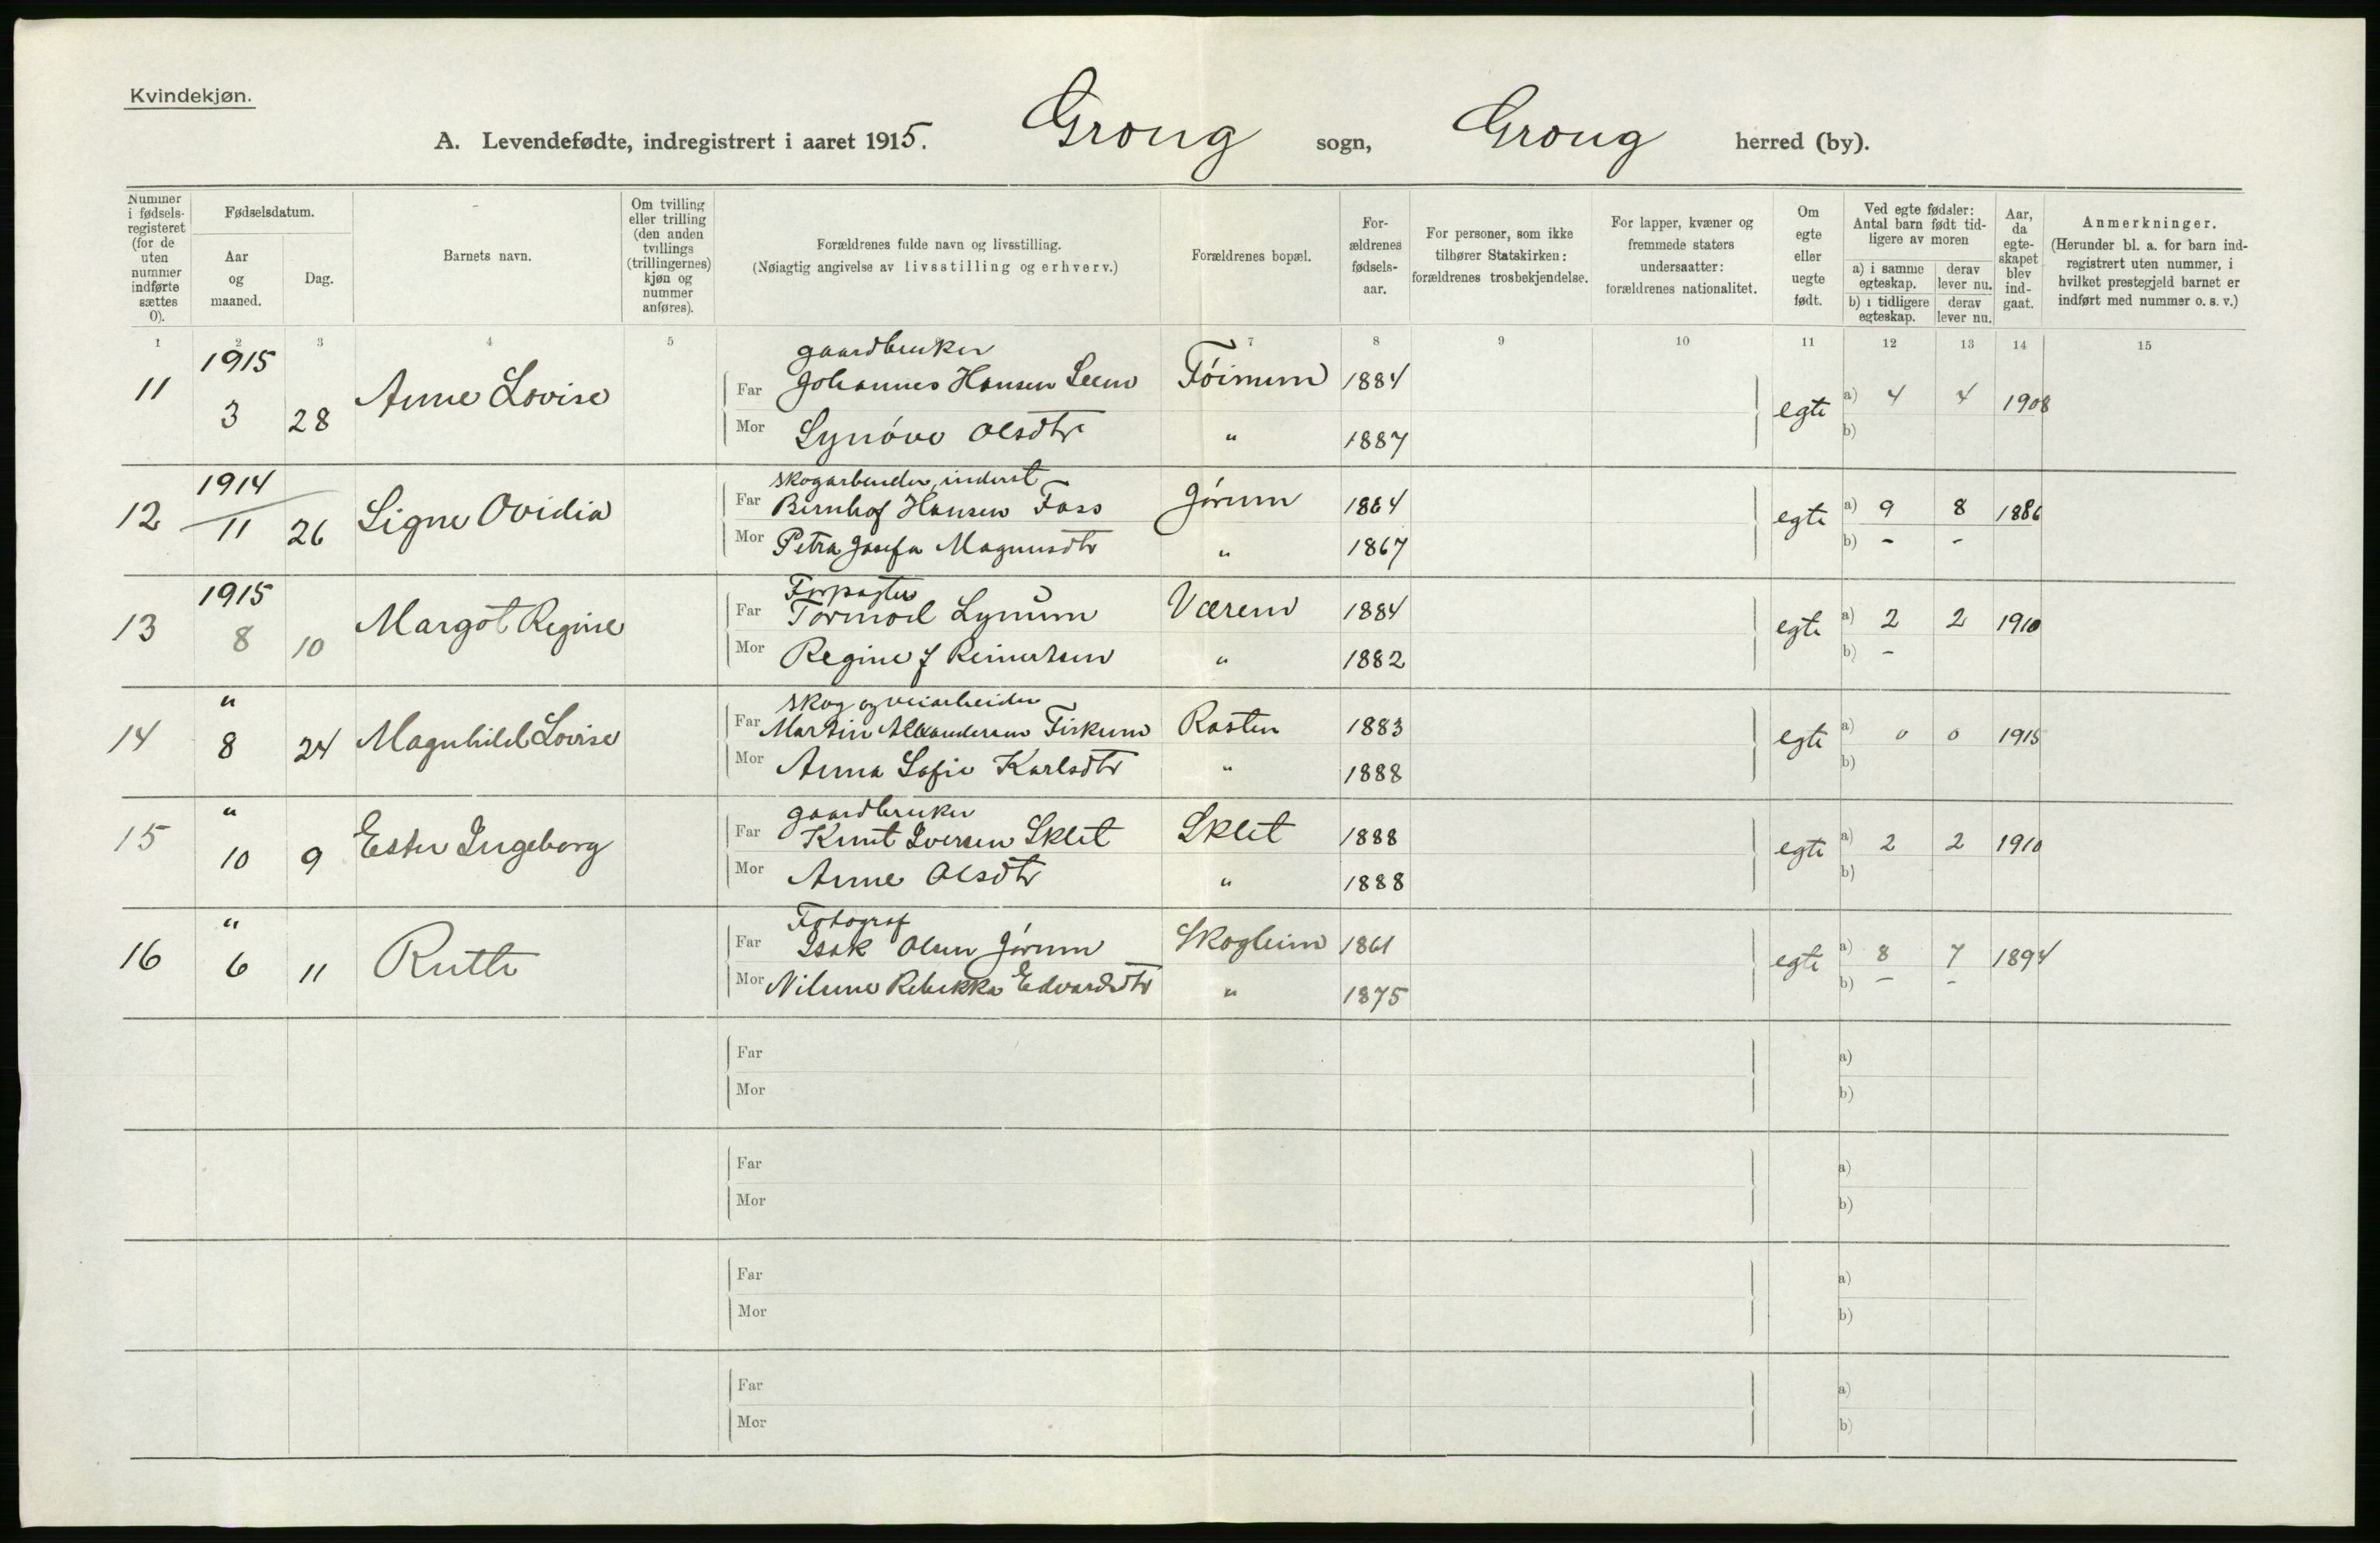 Kvindekjøn.
A. Levendefødte, indregistrert i aaret 1915. Grong sogn, Grong herred (by).
Nummer i fødsels-registeret (for de uten nummer indførte sættes 0).
Fødselsdatum.
Aar og maaned.
Dag.
Barnets navn.
Om tvilling eller trilling (den anden tvillings (trillingernes) kjøn og nummer anføres).
Forældrenes fulde navn og livsstilling.
(Nøiagtig angivelse av livsstilling og erhverv.)
Forældrenes bopæl.
For-ældrenes fødsels-aar.
For personer, som ikke tilhører Statskirken: forældrenes trosbekjendelse.
For lapper, kvæner og fremmede staters undersaatter: forældrenes nationalitet.
Om egte eller uegte født.
Ved egte fødsler: Antal barn født tid-ligere av moren
a) i samme egteskap.
derav lever nu.
b) i tidligere egteskap.
derav lever nu.
Aar, da egte-skapet blev ind-gaat.
Anmerkninger.
(Herunder bl. a. for barn ind-registrert uten nummer, i hvilket prestegjeld barnet er indført med nummer o. s. v.)
1 2 3 4 5 7 8 9 10 11 12 13 14 15
1915 gaardbruker
11 3 28 Anne Lovise Far Johannes Hansen Seem Tøimum 1884 egte a) 4 4 1908
Mor Synøve Olsdtr " 1887 b)
1914 skogarbeider, inderst
12 11 26 Signe Ovidia Far Bernhof Hansen Foss Jørum 1864 egte a) 9 8 1886
Mor Petra Josefa Magnusdtr " 1867 b) - -
1915 Forpagter
13 8 10 Margot Regine Far Tormod Lynum Værem 1884 egte a) 2 2 1910
Mor Regine J Reinertsen " 1882 b) -
" skog og veiarbeider
14 8 24 Magnhild Lovise Far Martin Alexandersen Fiskum Rosten 1883 egte a) 0 0 1915
Mor Anna Sofie Karlsdtr " 1888 b)
" gaardbruker
15 10 9 Ester Ingeborg Far Knut Iversen Sklet Sklet 1888 egte a) 2 2 1910
Mor Anne Olsdtr " 1888 b)
" Fotograf
16 6 11 Ruth Far Isak Olsen Jørum Skogheim 1861 egte a) 8 7 1894
Mor Niline Rebekka Edvardsdtr " 1875 b) - -
Far a)
Mor b)
Far a)
Mor b)
Far a)
Mor b)
Far a)
Mor b)